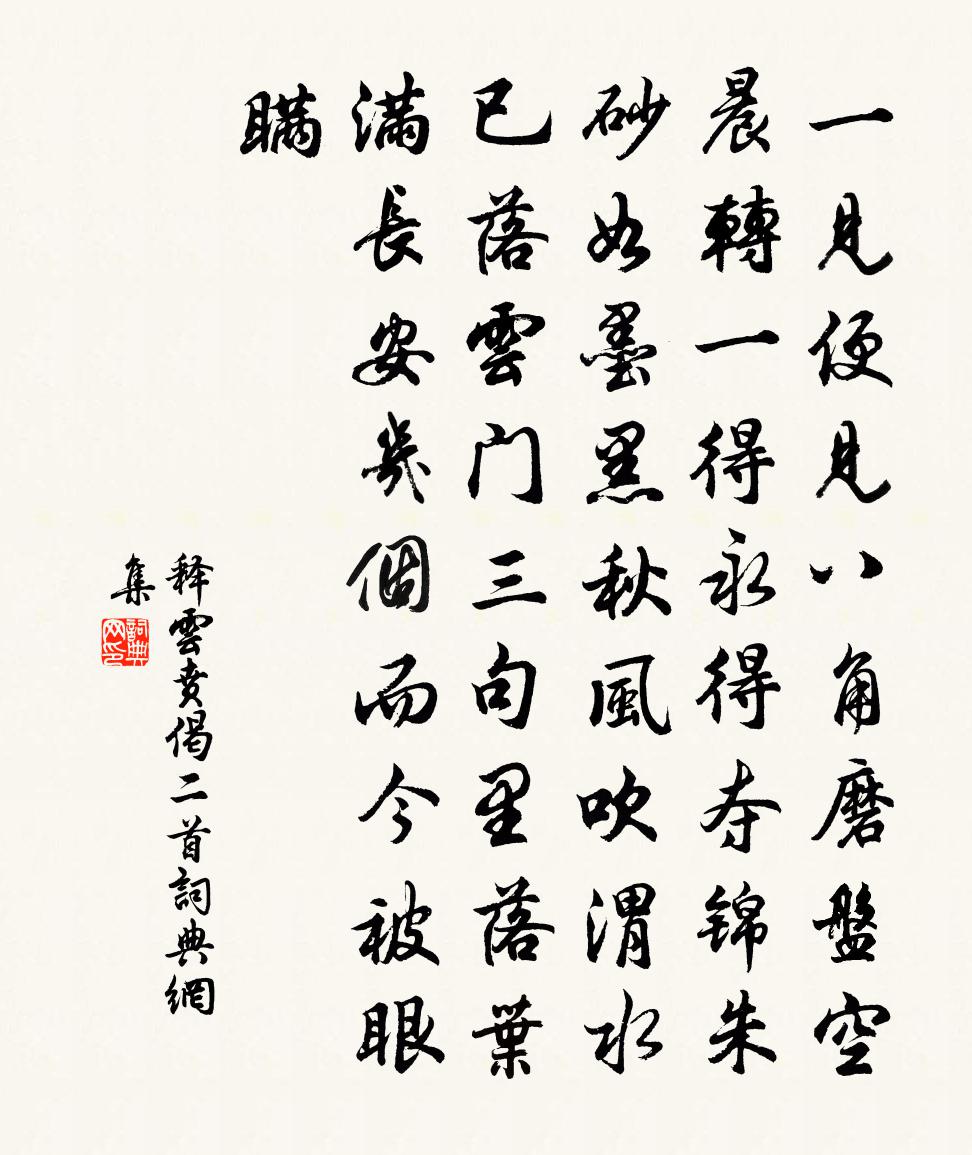 一見便見八角磨盤空
晨轉一得永得夺锦朱
砂如墨黑秋風吹渭水
已落雲门三句里落葉
滿長安幾個而今被眼
瞞
释雲賁偈二首詞典網
集
詞典网印